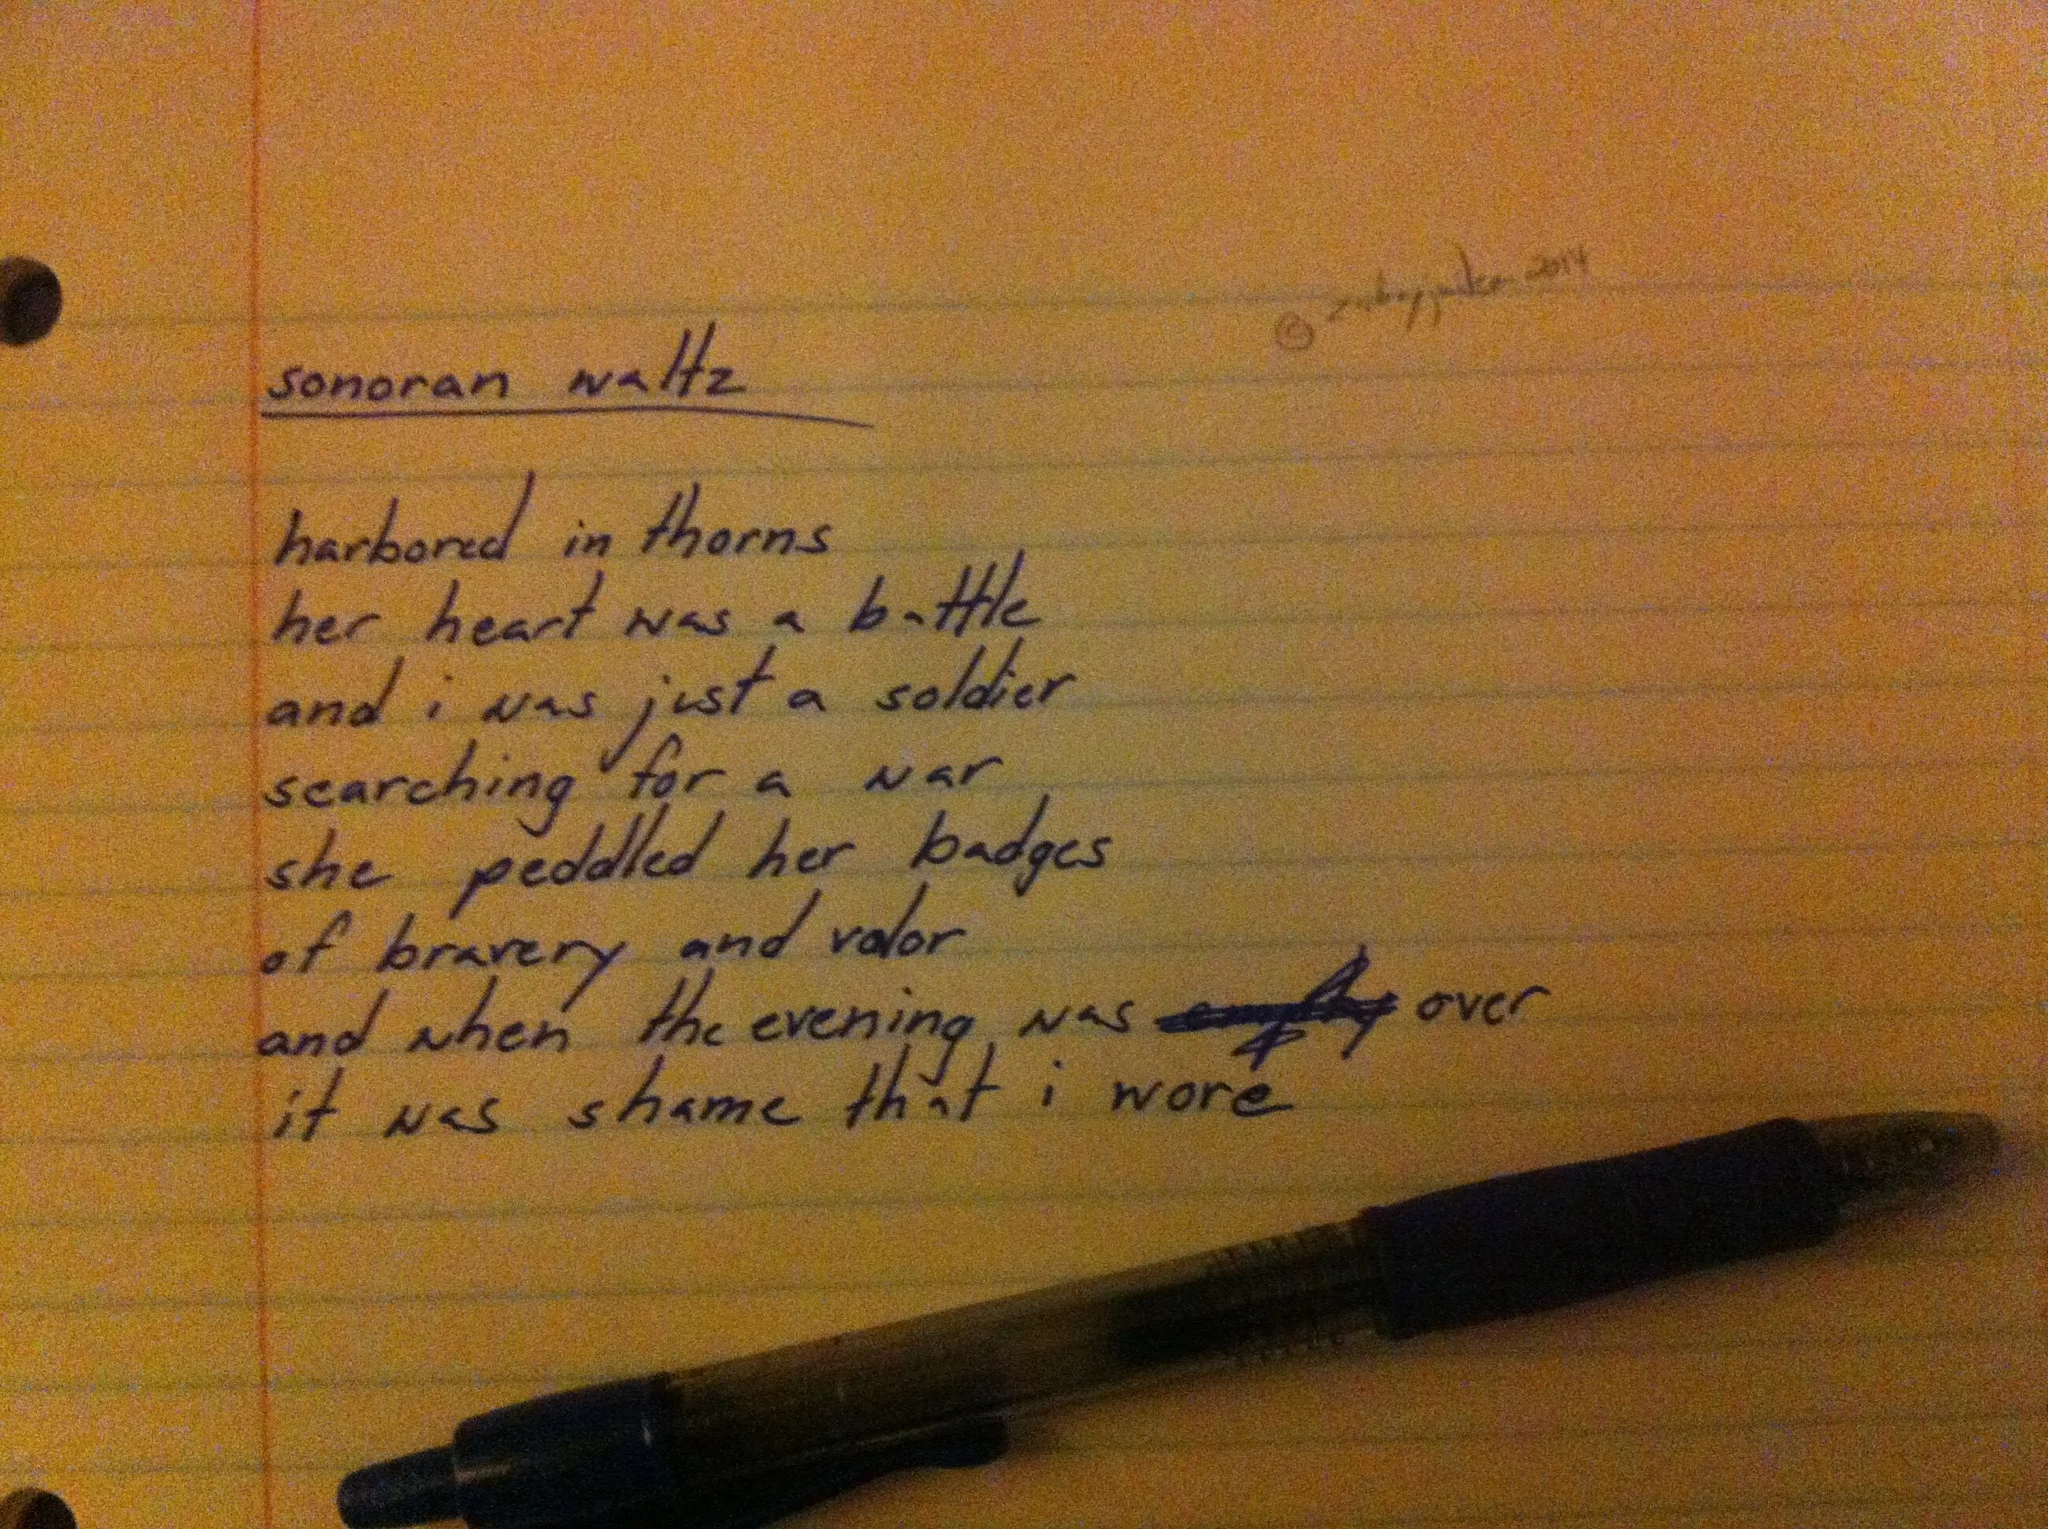 © 2014
sonoran waltz
harbored in thorns
her heart was a battle
and i was just a soldier
searching for a war
she peddled her badges
of bravery and valor
and when the evening was over
it was shame that i wore